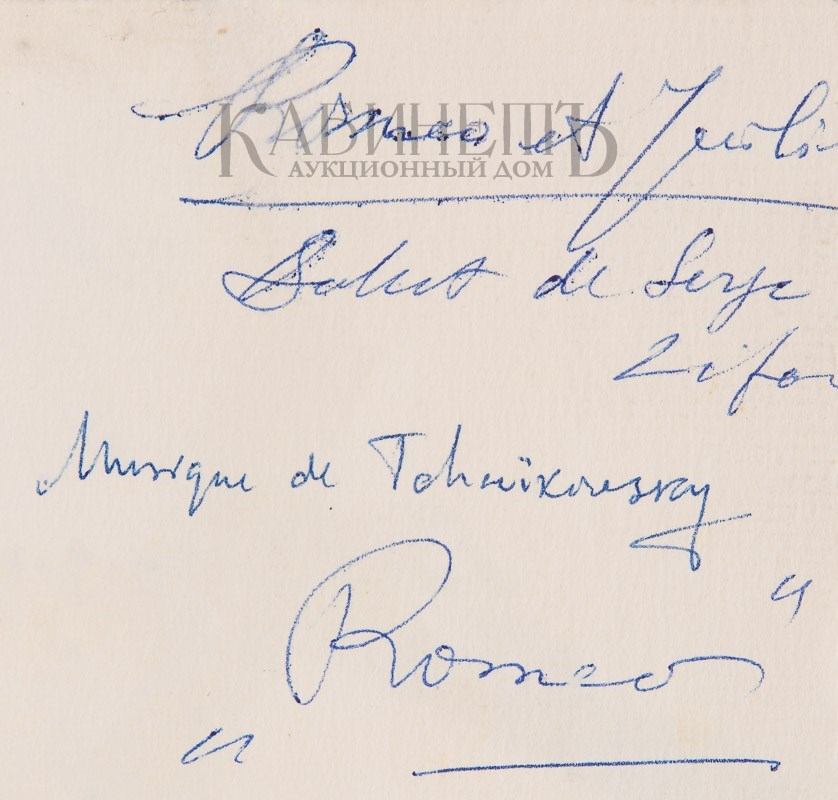 Romeo et Juli
КАБИНЕТЪ
АУКЦИОННЫЙ ДОМ
Balet de Serge
Lifar
Musique de Tchaïkovssky
„Romeo“